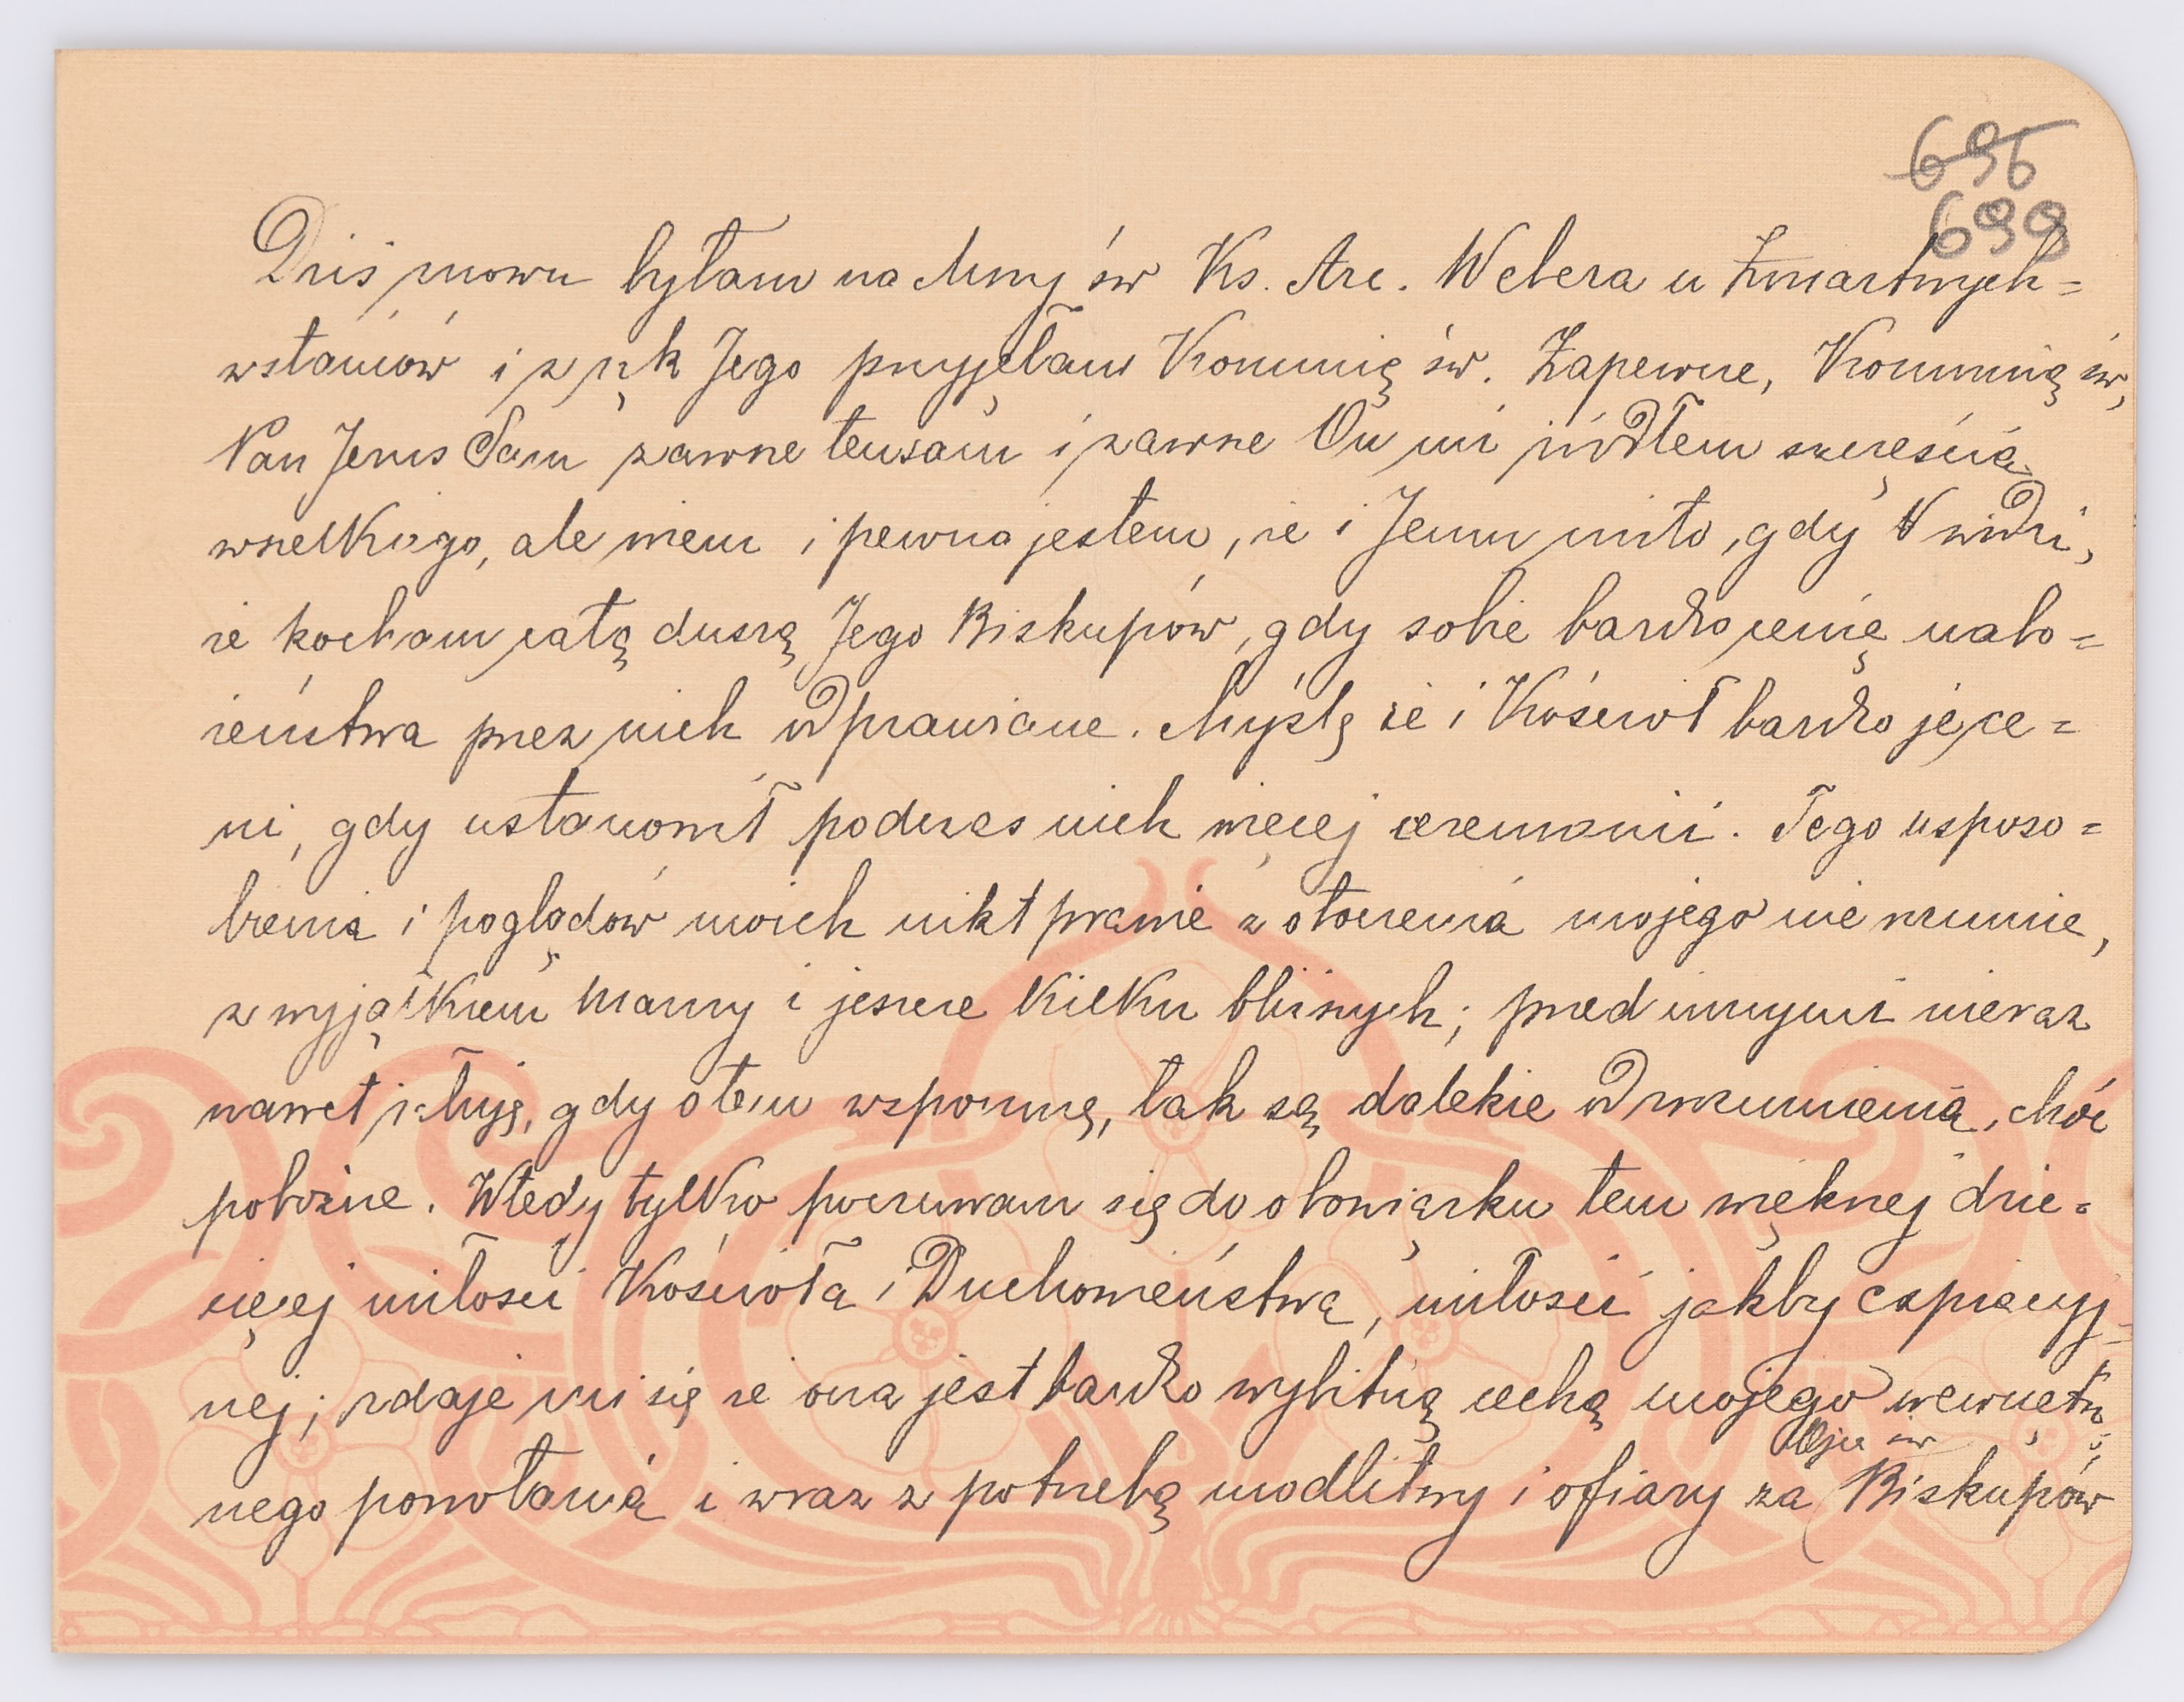 696
699
Dziś znowu byłam na Mszy św Ks. Arc. Webera u Zmartwych=
wstańców i z rąk Jego przyjęłam Komunię św. Zapewne, Komunią św,
Pan Jezus Sam zawsze tensam i zawsze On mi źródłem szczęścia
wszelkiego, ale wiem i pewna jestem, że i Jemu miło, gdy widzi,
że kocham całą duszą Jego Biskupów, gdy sobie bardzo cenię nabo=
żeństwa przez nich odprawiane. Myślę że i Kościół bardzo je ce=
ni, gdy ustanowił podczas nich więcej ceremonii. Tego usposo=
bienia i poglądów moich nikt prawie z otoczenia mojego nie rozumie,
z wyjątkiem Mamy i jeszcze kilku bliższych; przed innymi nieraz
nawet żałuję, gdy o tem wspomnę, tak są dalekie od zrozumienia, choć
pobożne. Wtedy tylko poczuwam się do obowiązku tem większej dzie=
cięcej miłości Kościoła i Duchowieństwa, miłości jakby expiacyj=
nej; zdaje mi się że ona jest bardzo wybitną cechą mojego wewnętrz=
Ojca św
nego powołania i wraz z potrzebą modlitwy i ofiary za Biskupów